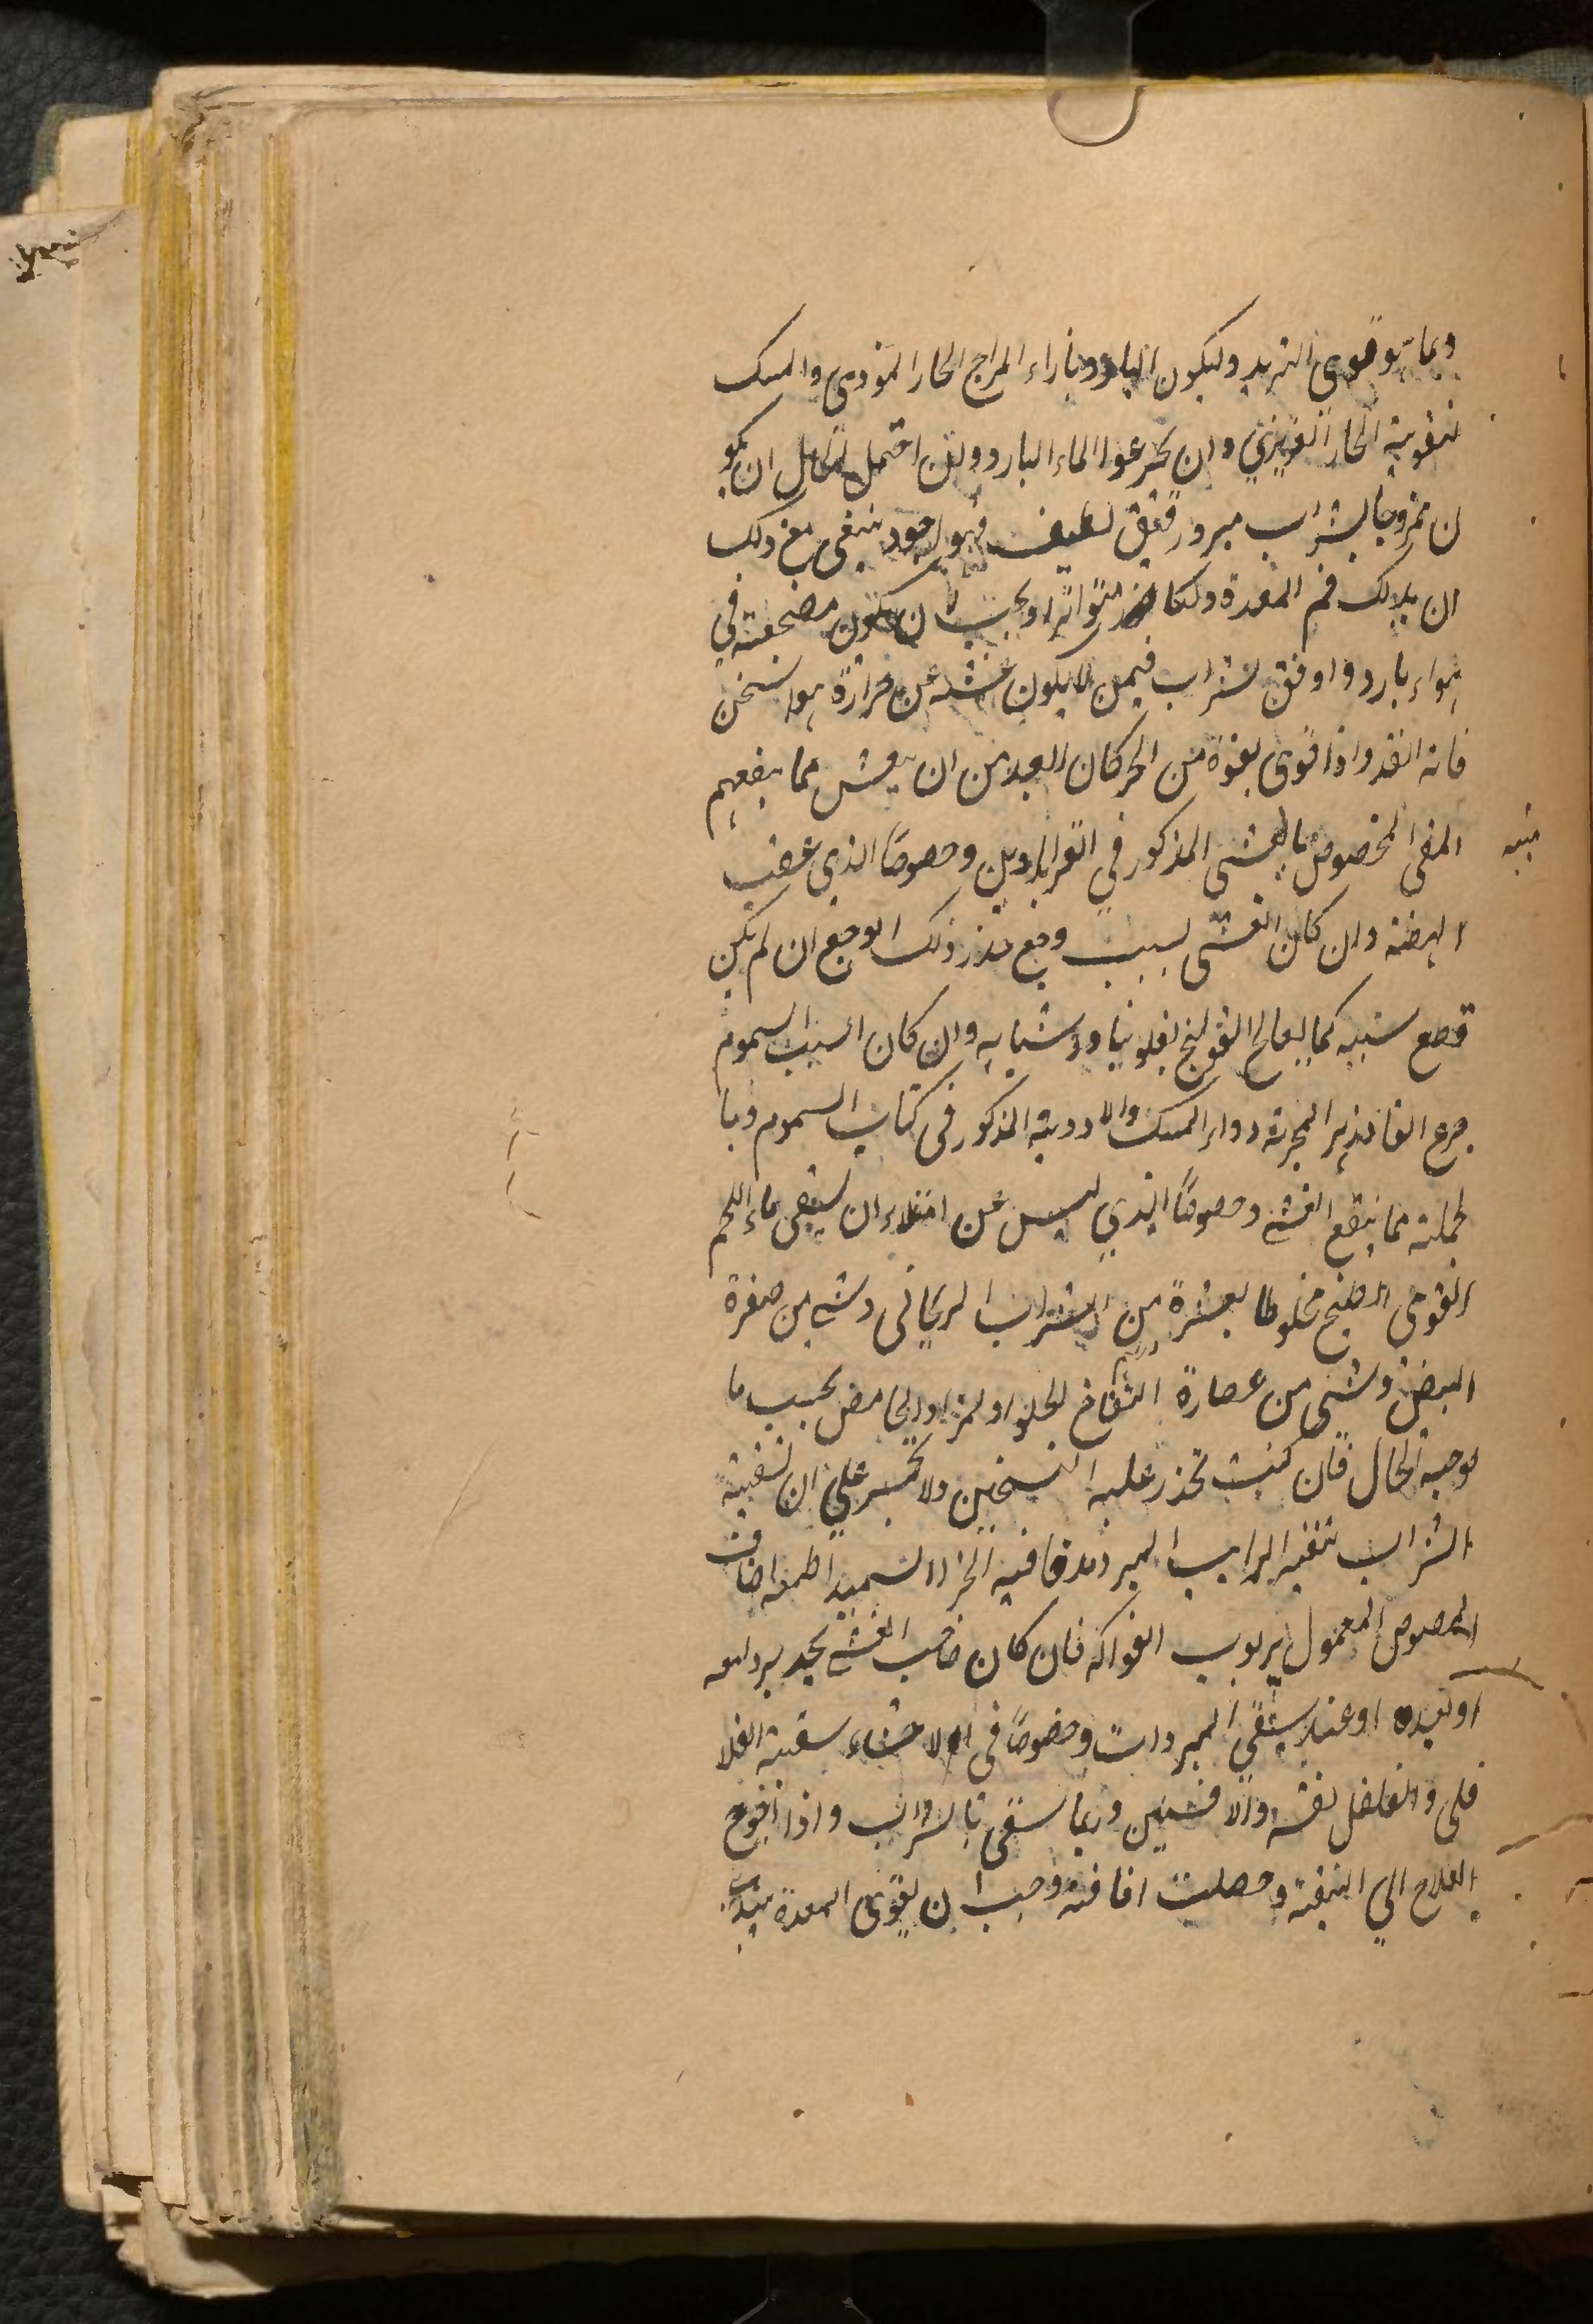 وبما هو قوى التبريد وليكون البارد بازاء المزاج الحار الموذى والمسك
لتقوية الحار الغريزي وان يجرعوا الماء البارد ولئن احتمل الحال ان يكو
ن ممزوجا بشراب مبرد رقيق لطيف فهو اجود ينبغي مع ذلك
ان يدلك فم المعدة دلكا متواترا ويجب ان يكون مضجعته في
هواء بارد واوفق الشراب فيمن لا يكون غشيه عن حرارة هو اسخن
فانه انفذ واذا قوى بقوة من الحر كان ابعد من ان يغش مما ينفعهم
القي المخصوص بالغشى المذكور في القرابادين وخصوصا الذي عقيب
الهيضة وان كان الغشى بسبب وجع خدر ذلك الوجع ان لم يكن
قطع سببه كما يعالج القولنج بفلونيا واشباهه وان كان السبب السموم
جرع الفادزهر المجربة دواء المسك والادوية المذكور في كتاب السموم وبا
لجملة مما ينفع الغشى وخصوصا الذي ليس عن امتلاء ان يسقى ماء اللحم
القوى الطبخ مخلوطا بعشرة من الشراب الريحاني وشى من صفرة
البيض وشى من عصارة التفاح الحلو او المز او الحامض بحسب ما
يوجبه الحال فان كنت تحذر عليه التسخين ولا تجسر على ان تسقيه
الشراب سقيه الرايب المبرد مدقا فيه الخبز السميد اطعمه اضاف
المصوص المعمول بربوب الفواكه فان كان صاحب الغشى يجد برد امعه
او بعده او عند سقى المبردات وخصوصا في الاحشاء سقيته الفلا
فلى والفلفل نفسه والافسنتين وربما سقى بالشراب واذا احوج
العلاج الي التنقية وحصلت افاقة وجب ان يقوى المعدة